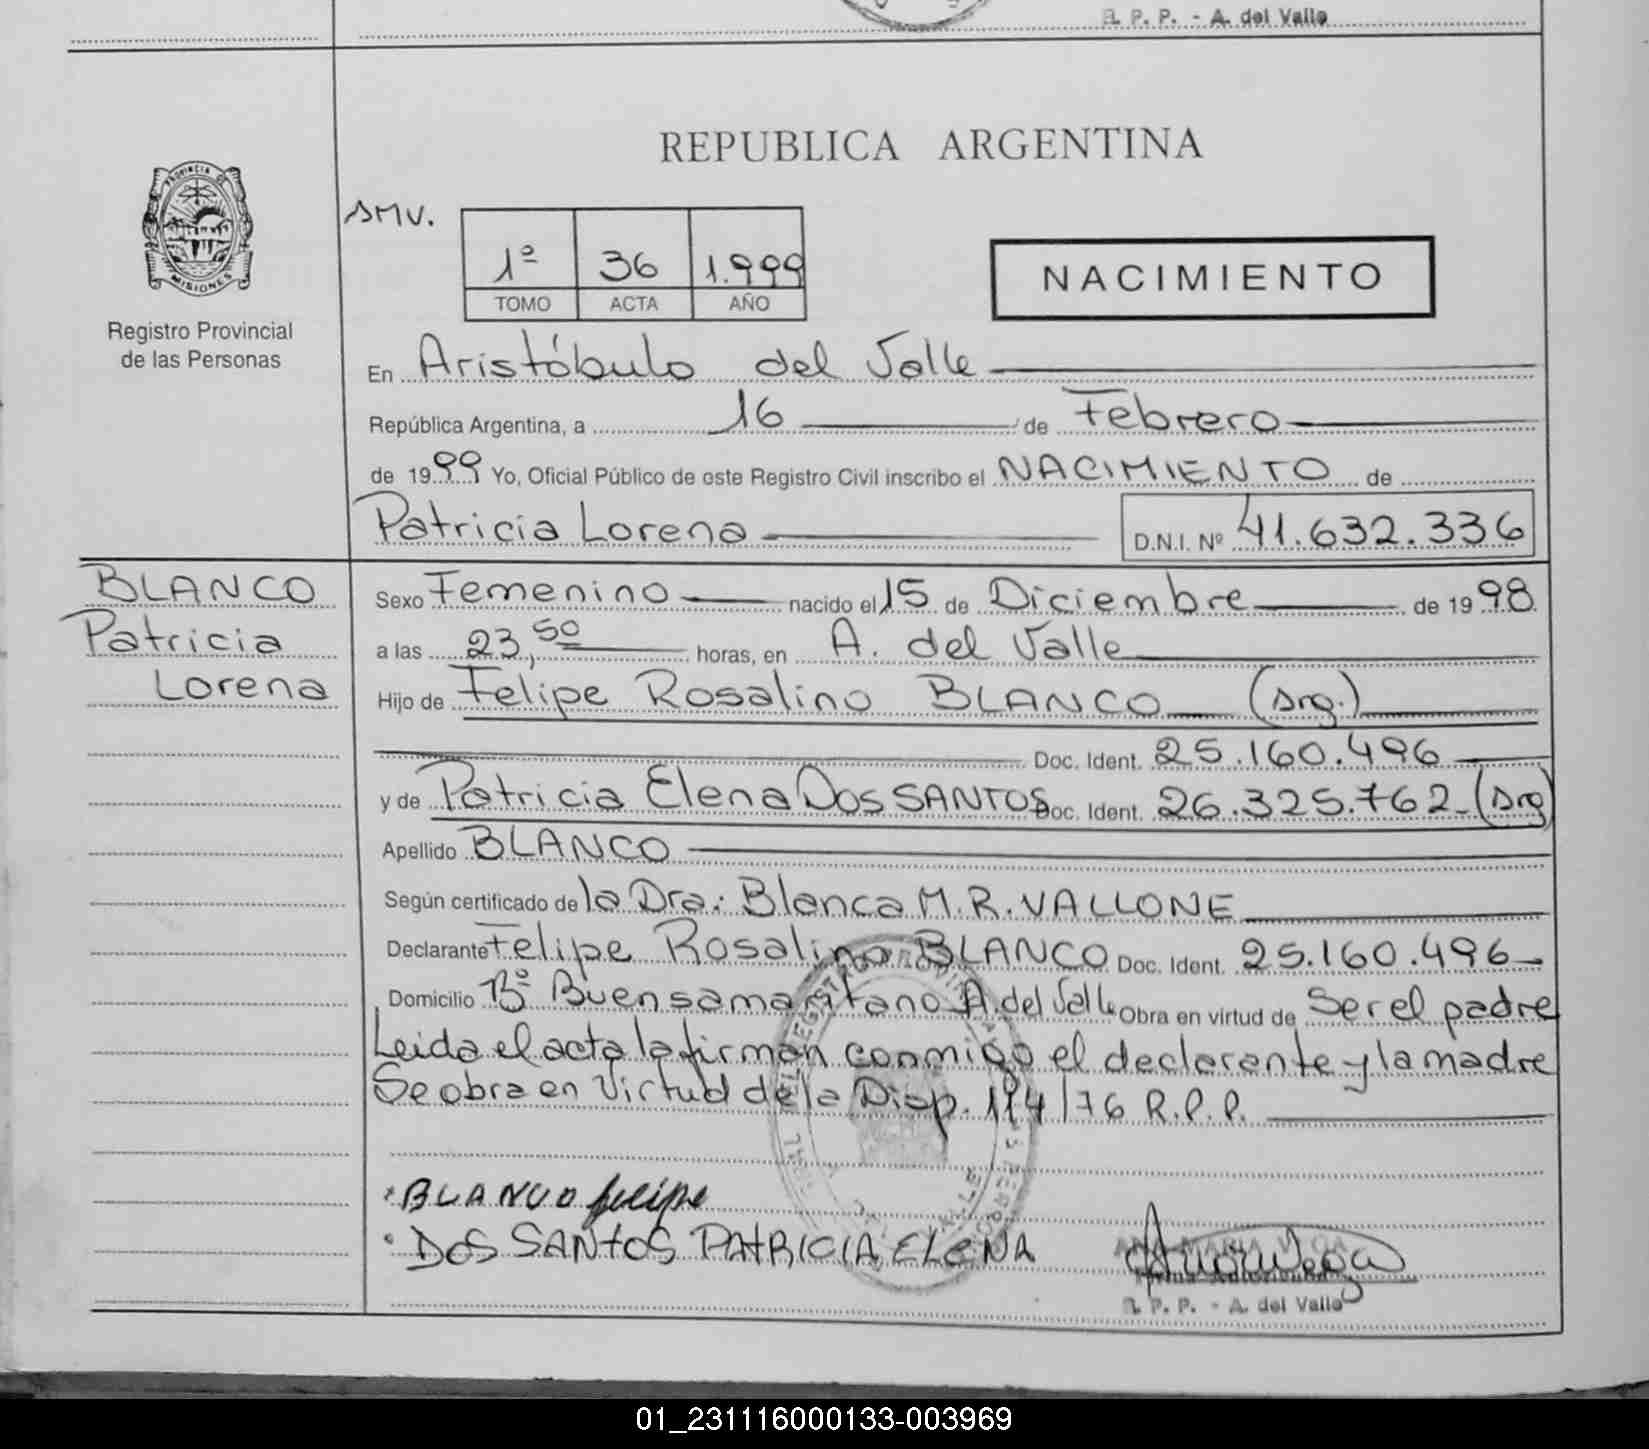 R. P. P. - A. del Valle
REPUBLICA ARGENTINA
PROVINCIA DE
MISIONES
Registro Provincial
de las Personas
SMV.
1º 36 1.999
TOMO ACTA AÑO
NACIMIENTO
En Aristóbulo del Valle
República Argentina, a 16 de Febrero
de 1999 Yo, Oficial Público de este Registro Civil inscribo el NACIMIENTO de
Patricia Lorena D.N.I. Nº 41.632.336
BLANCO
Patricia
Lorena
Sexo Femenino nacido el 15 de Diciembre de 1998
a las 23,50 horas, en A. del Valle
Hijo de Felipe Rosalino BLANCO (Arg.)
Doc. Ident. 25.160.496
y de Patricia Elena Dos SANTOS Doc. Ident. 26.325.762 (Arg)
Apellido BLANCO
Según certificado de la Dra: Blanca M.R. VALLONE
Declarante Felipe Rosalino BLANCO Doc. Ident. 25.160.496
Domicilio Bº Buen samaritano A. del Valle Obra en virtud de Ser el padre
Leida el acta la firman conmigo el declarante y la madre
Se obra en virtud de la Disp. 114/76 R.P.P.
BLANCO felipe
DOS SANtOS PAtRICIA ELENA
ANA MARIA VEGA
R. P. P. - A. del Valle
01_231116000133-003969